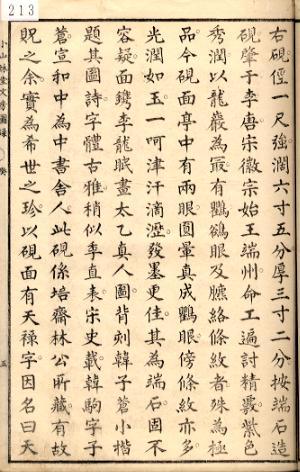 213
右硯徑一尺強濶六寸五分厚三寸二分按端石造
硯肇于李唐宋徽宗始王端州命工遍討精巖紫色
秀潤以龍巖為最有鸜鵒眼及臙絡條紋者殊為極
品今硯面亭中有兩眼圓暈真成鸜眼傍條紋亦多
光潤如玉一呵津汗滴瀝發墨更佳其為端石固不
容疑面鐫李龍眠畫太乙真人圖背刻韓子蒼小楷
題其圖詩字體古雅稍似季直表宋史載韓駒字子
蒼宣和中為中書舍人此硯係培齋林公所藏有故
貺之余實為希世之珍以硯面有天祿字因名曰天
小山林堂文房圖錄
癸
五